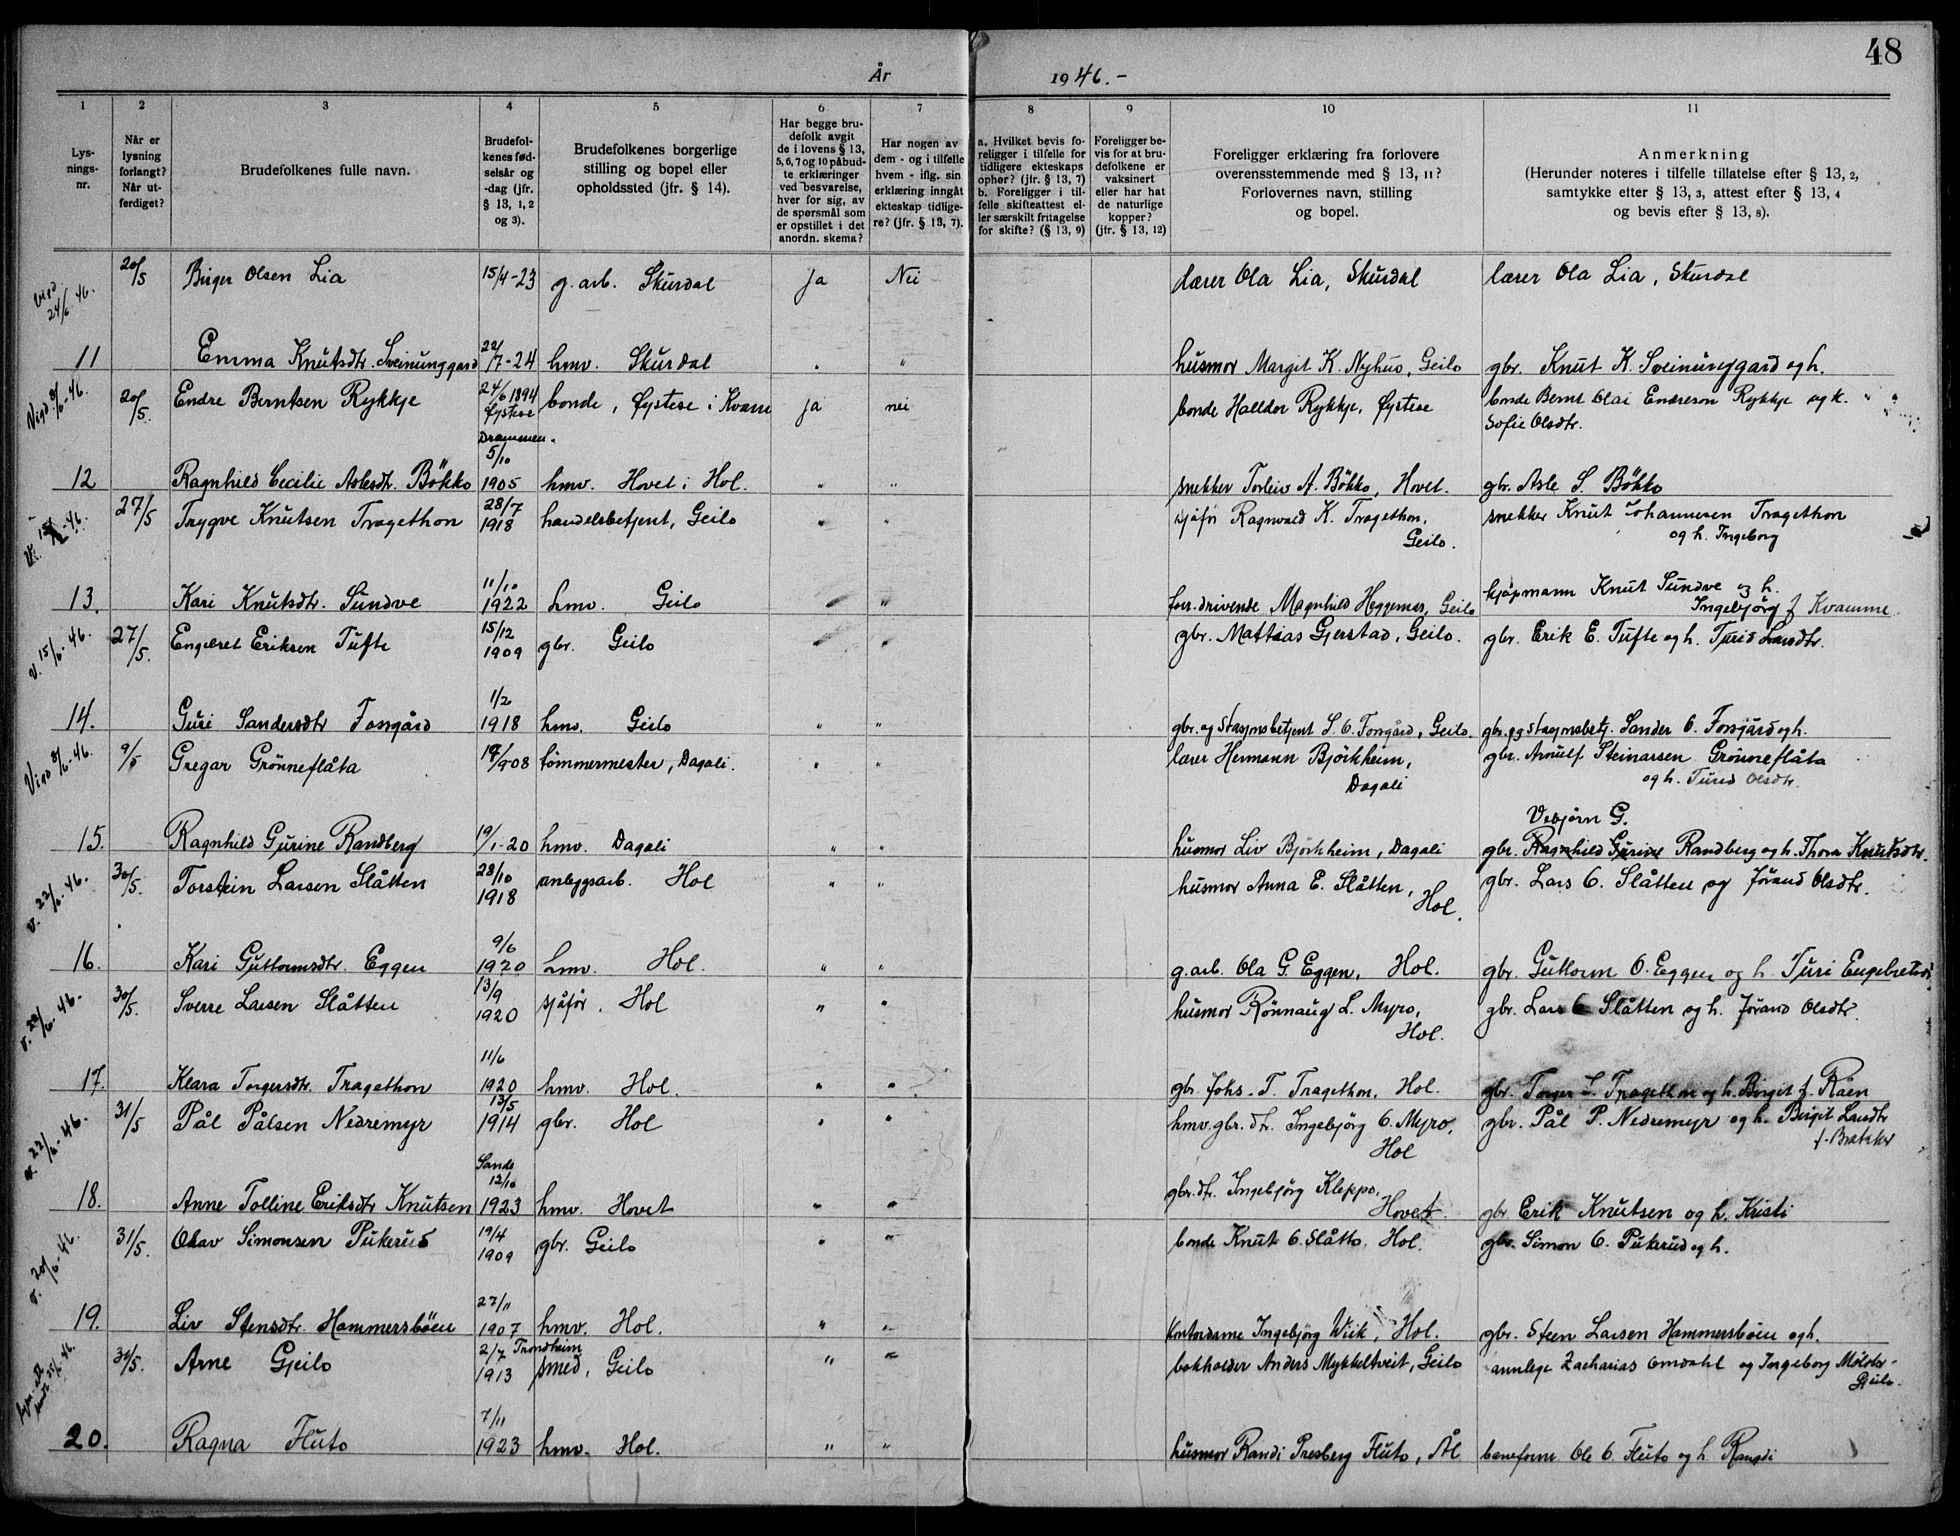 48
År 1946.-
1 2 3 4 5 6 7 8 9 10 11
Lysningsnr.
Når er lysning forlangt? Når utferdiget?
Brudefolkenes fulle navn.
Brudefolkenes fødselsår og -dag (jfr. § 13, 1, 2 og 3).
Brudefolkenes borgerlige stilling og bopel eller opholdssted (jfr. § 14).
Har begge brudefolk avgit de i lovens § 13, 5, 6, 7 og 10 påbudte erklæringer ved besvarelse, hver for sig, av de spørsmål som er opstillet i det anordn. skema?
Har nogen av dem - og i tilfelle hvem - iflg. sin erklæring inngått ekteskap tidligere? (jfr. § 13, 7).
a. Hvilket bevis foreligger i tilfelle for tidligere ekteskaps ophør? (jfr. § 13, 7) b. Foreligger i tilfelle skifteattest eller særskilt fritagelse for skifte? (§ 13, 9)
Foreligger bevis for at brudefolkene er vaksinert eller har hat de naturlige kopper? (jfr. § 13, 12)
Foreligger erklæring fra forlovere overensstemmende med § 13, 11? Forlovernes navn, stilling og bopel.
Anmerkning (Herunder noteres i tilfelle tillatelse efter § 13, 2, samtykke efter § 13, 3, attest efter § 13, 4 og bevis efter § 13, 8).
24/6 46. 20/5 Birger Olsen Lia 15/4-23 g.arb. Skurdal Ja Nei lærer Ola Lia, Skurdal lærer Ola Lia, Skurdal
11 Emma Knutsdtr. Sveinunggard 22/7-24 hmv. Skurdal " " husmor Margit K. Nyhus, Geilo gbr. Knut K. Sveinunggard og h.
Vigd 8/6-46. 20/5 Endre Berntsen Rykkje 24/6 1894 Øystese bonde, Øystese i Kvam ja nei bonde Halldor Rykkje, Øystese bonde Bernt Olai Endreson Rykkje og k. Sofie Olsdtr.
12 Ragnhild Cecilie Aslesdtr. Bökko Drammen. 5/10 1905 hmv. Hovet i Hol. " " snekker Torleiv A. Bökko, Hovet. gbr. Asle S. Bökko
27/5 Trygve Knutsen Tragethon 28/7 1918 handelsbetjent, Geilo " " sjåför Ragnvald K. Tragethon, Geilo. snekker Knut Johannesen Tragethon og h. Ingeborg
13. Kari Knutsdtr. Sundve 11/10 1922 hmv. Geilo " " forr.drivende Magnhild Heggemes, Geilo kjøpmann Knut Sundve og h. Ingebjörg f. Kvamme.
v. 15/6-46. 27/5. Engebret Eriksen Tufte 15/12 1909 gbr. Geilo " " gbr. Mattias Gjerstad, Geilo. gbr. Erik E. Tufte og h. Turid Larsdtr.
14. Guri Sandersdtr Fossgård 1/2 1918 hmv. Geilo " " gbr. og Stasjonsbetjent S. O. Fossgård, Geilo. gbr. og Stasjonsbetj. Sander O. Fossgård og h.
Vigd 8/6-46. 9/5 Gregar Grönneflåta 1908 tömmermester, Dagali. " " lærer Hermann Björkheim, Dagali gbr. Arnulf Steinarsen Grönneflåta og h. Turid Olsdtr.
15. Ragnhild Gurine Randberg 19/1-20 hmv. Dagali " " husmor Liv Björkheim, Dagali gbr. Vebjørn G. Randberg og h. Thora Knutsdtr.
v. 22/6-46. 30/5. Torstein Larsen Slåtten 28/10 1918 anleggsarb. Hol " " husmor Anna E. Slåtten, Hol. gbr. Lars O. Slåtten og Jörand Olsdtr.
16. Kari Guttormsdtr. Eggen 9/6 1920 hmv. Hol. " " g.arb. Ola G. Eggen, Hol. gbr. Guttorm O. Eggen og h. Turi Engebretsd.
v. 22/6-46. 30/5. Sverre Larsen Slåtten 13/9 1920 sjåför. Hol " " husmor Rönnaug L. Myro, Hol. gbr. Lars O Slåtten og h. Jörand Olsdtr.
17. Klara Torgersdtr. Tragethon 11/6 1920 hmv. Hol. " " gbr. Johs. T. Tragethon, Hol. gbr. Torger S. Tragethon og h. Birgit f. Råen
v. 22/6-46. 31/5 Pål Pålsen Nedremyr 13/5 1914 gbr. Hol " " hmv. gbr. dtr. Ingebjörg O. Myro, Hol gbr. Pål P. Nedremyr og h. Birgit Larsdtr
18. Anne Tolline Eriksdtr Knutsen Sande 12/10 1923 hmv. Hovet " " gbr.dtr. Ingebjörg Kleppo, Hovet. gbr. Erik Knutsen og h. Kristi
v. 20/6-46. 31/5. Olav Simonsen Pukerud 19/4 1909 gbr. Geilo " " bonde Knut O. Slåtto. Hol. gbr. Simon O. Pukerud og h.
19. Liv Stensdtr. Hammersböen 27/11 1907 hmv. Hol. " " Kontordame Ingebjörg Wiik, Hol. gbr. Steen Larsen Hammersböen og h.
31/5. Arne Gjeilo 2/7 1913 Trondheim smed, Geilo " " bokholder Anders Mykkeltveit, Geilo Zacharias Omdahl og Ingeborg
20. Ragna Fluto 7/11 1923 hmv. Hol. " " husmor Randi Presberg Fluto, Ål Ole O. Fluto og h. Randi